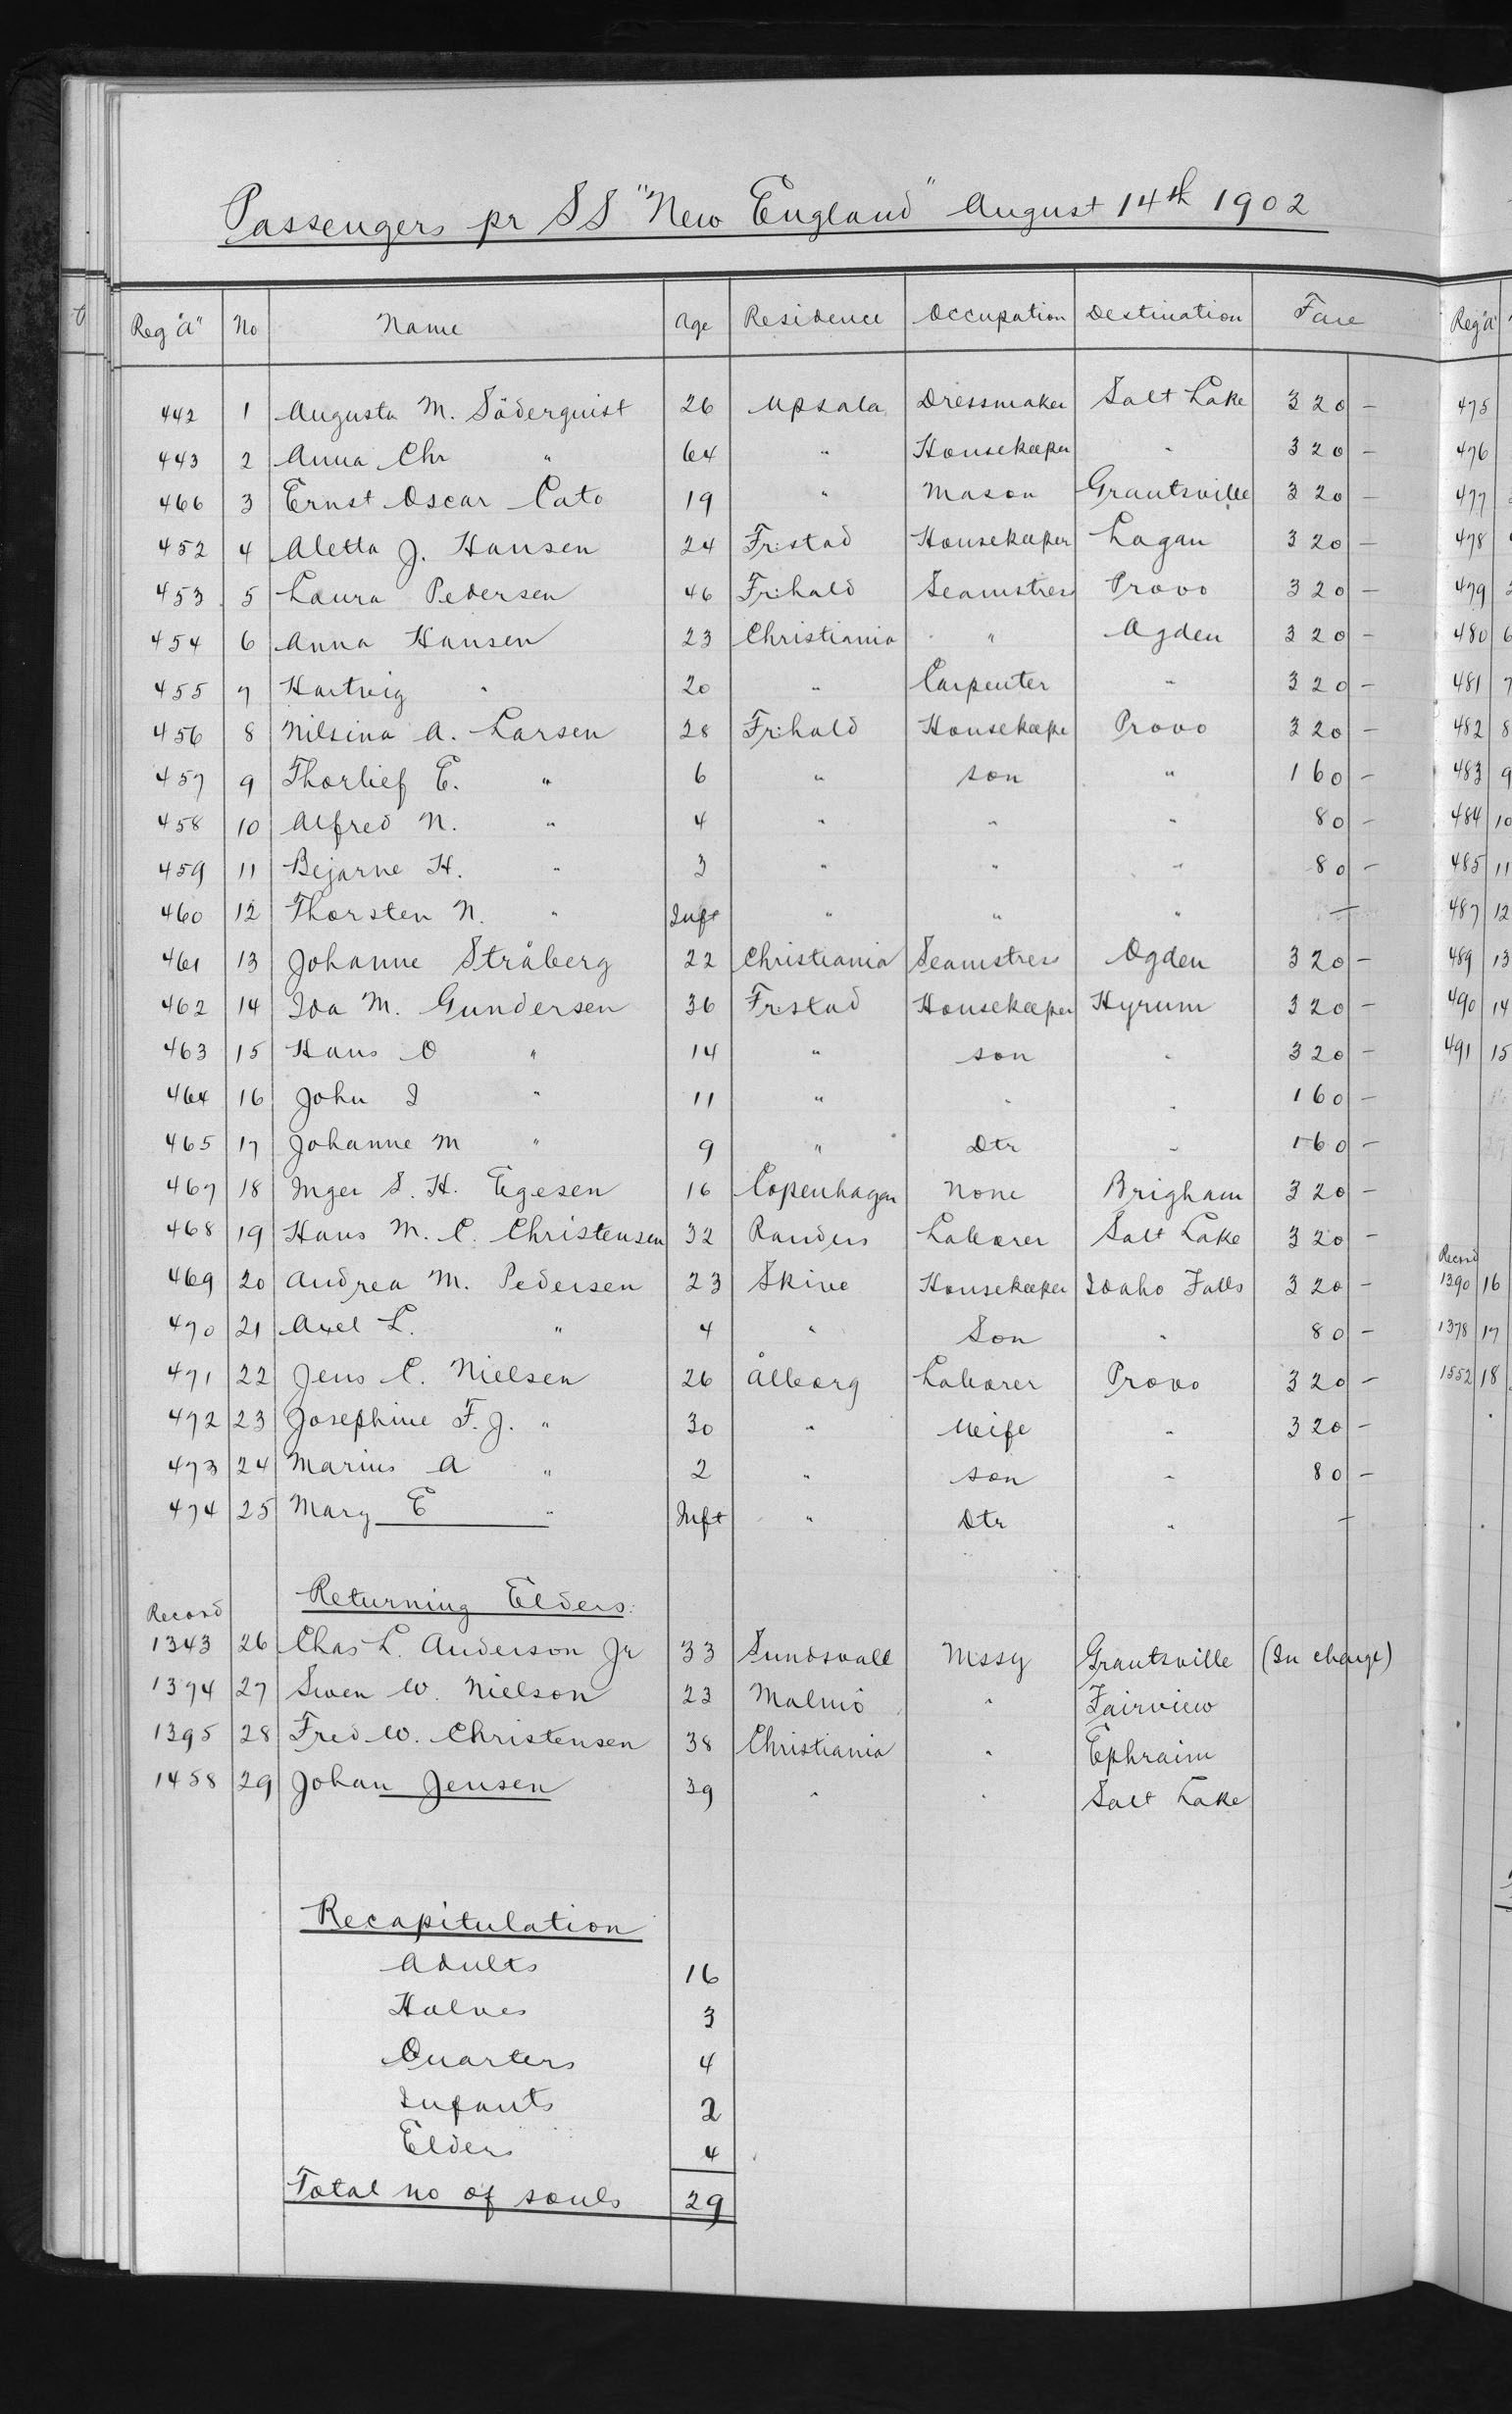 Passengers pr SS "New England" August 14th 1902
Reg "A" No Name Age Residence Occupation Destination Fare
442 1 Augusta M. Söderquist 26 Upsala Dressmaker Salt Lake 320 -
443 2 Anna Chr " 64 " Housekeeper " 320 -
466 3 Ernst Oscar Cato 19 " Mason Grantsville 320 -
452 4 Aletta J. Hansen 24 Fr:stad Housekeeper Logan 320 -
453 5 Laura Pedersen 46 Fr:hald Seamstres Provo 320 -
454 6 Anna Hansen 23 Christiania " Ogden 320 -
455 7 Hartvig " 20 " Carpenter " 320 -
456 8 Nilsina A. Larsen 28 Fr:hald Housekeepe Provo 320 -
457 9 Thorlief E. " 6 " son " 160 -
458 10 Alfred N. " 4 " " " 80 -
459 11 Bejarne H. " 3 " " " 80 -
460 12 Thorsten N. " Inft " " " -
461 13 Johanne Stråberg 22 Christiania Seamstres Ogden 320 -
462 14 Ida M. Gundersen 36 Fr:stad Housekeeper Hyrum 320 -
463 15 Hans O " 14 " son " 320 -
464 16 John I " 11 " " " 160 -
465 17 Johanne M " 9 " Dtr " 160 -
467 18 Inger S. H. Egesen 16 Copenhagen None Brigham 320 -
468 19 Hans M. C. Christensen 32 Randers Laborer Salt Lake 320 -
469 20 Andrea M. Pedersen 23 Skive Housekeeper Idaho Falls 320 -
470 21 Axel L. " 4 " Son " 80 -
471 22 Jens C. Nielsen 26 Ålborg Laborer Provo 320 -
472 23 Josephine F. J. " 30 " Weife " 320 -
473 24 Marius A " 2 " son " 80 -
474 25 Mary E " Inft " Dtr " -
Returning Elders:
Record
1343 26 Chas L. Anderson Jr 33 Sundsvall Mssy Grantsville (In charge)
1394 27 Swen W. Nielson 23 Malmö " Fairview
1395 28 Fred W. Christensen 38 Christiania " Ephraim
1458 29 Johan Jensen 39 " " Salt Lake
Recapitulation
Adults 16
Halves 3
Quarters 4
Infants 2
Elders 4
Total no of souls 29
Reg "A"
475
476
477
478
479
480 6
481 7
482 8
483 9
484 10
485 11
487 12
489 13
490 14
491 15
Record
1390 16
1378 17
1552 18